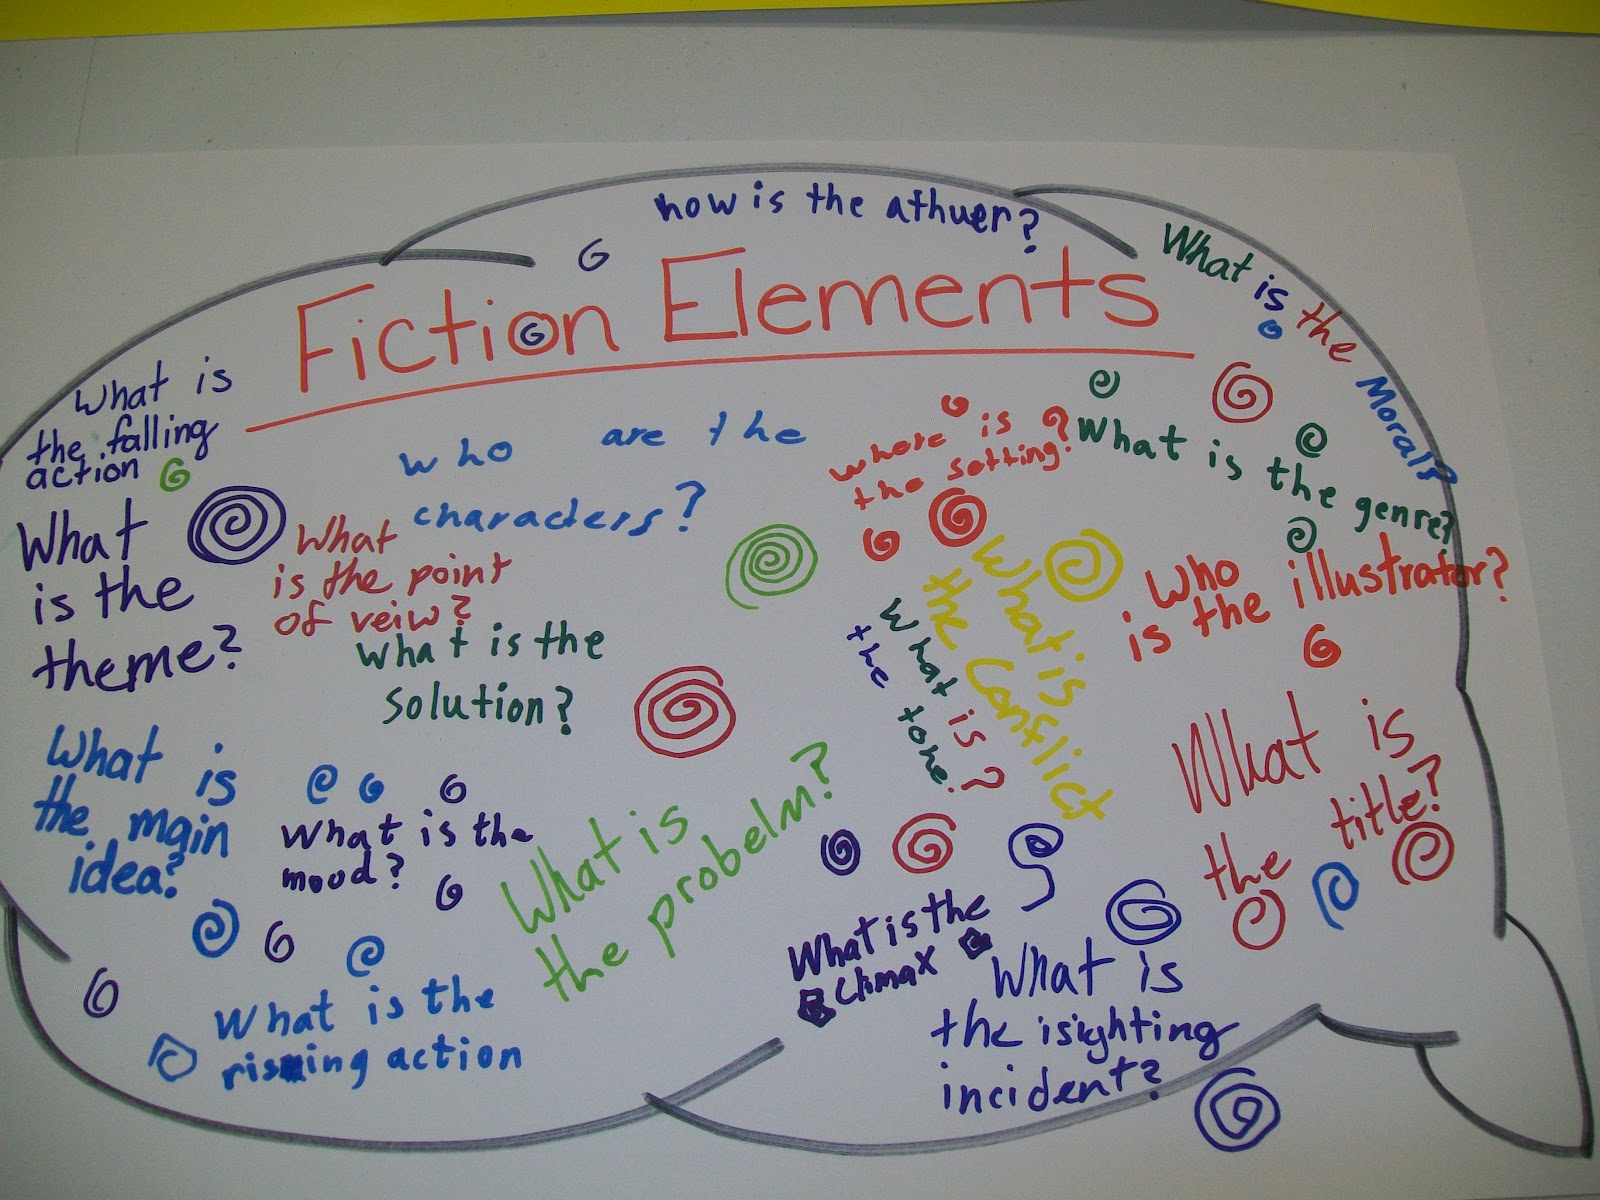 how is the athuer?
Fiction Elements
What is the Moral?
What is
the falling
action
who are the
characters?
where is
the setting?
What is the genre?
What
is the
theme?
What
is the point
of veiw?
What is
the Conflict
Who
is the illustrator?
What is the
solution?
What is?
the tone.
What is
the main
idea?
What is the
mood?
What is
the probelm?
What is
the title?
What is the
climax
What is the
rising action
What is
the isighting
incident?